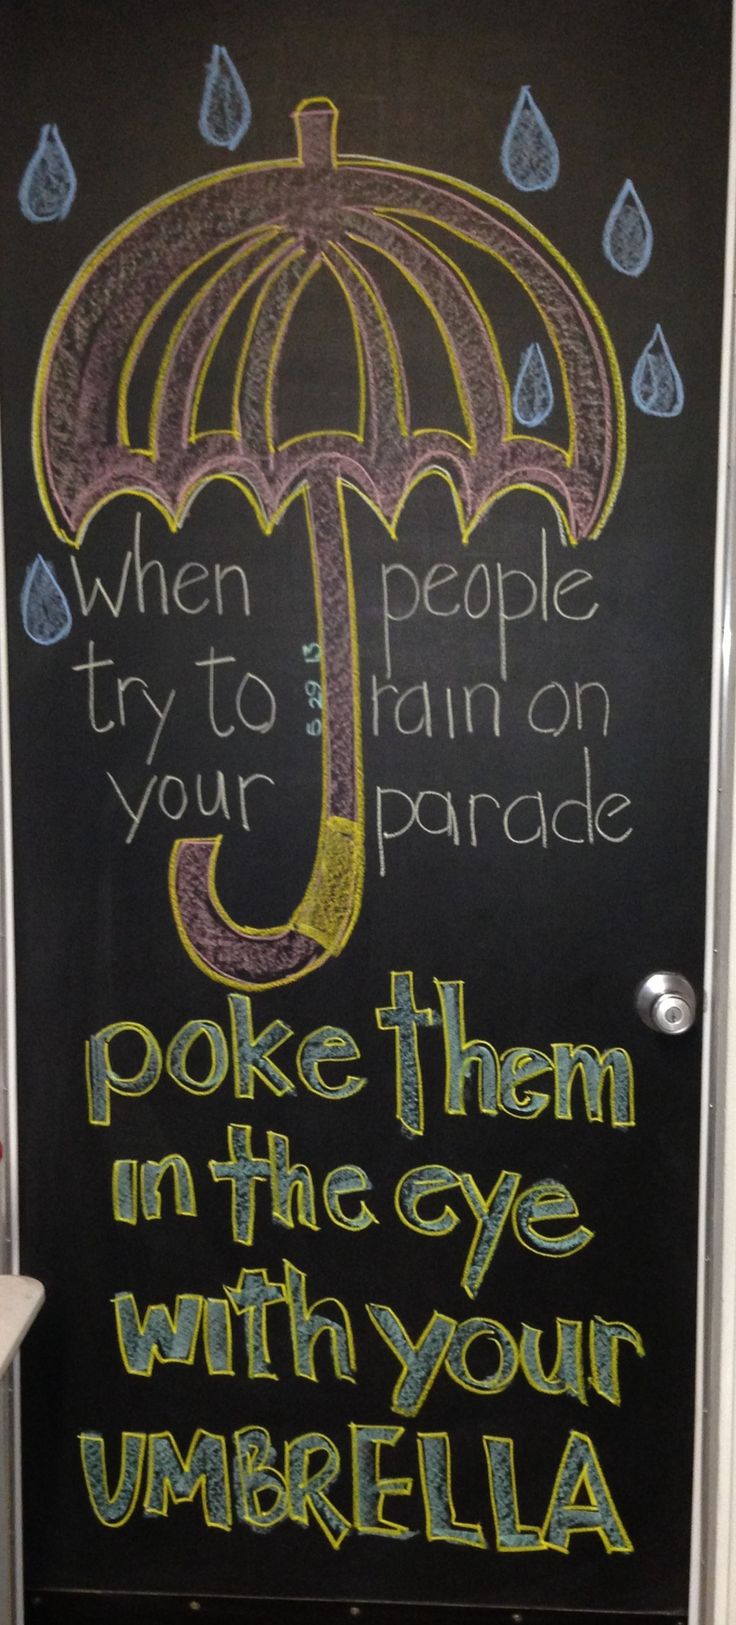 when people
try to rain on
your parade
5 29 13
poke them
in the eye
with your
UMBRELLA